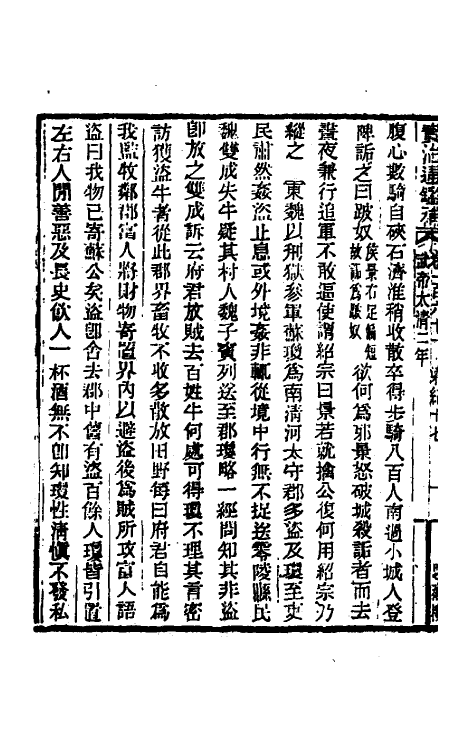 資治通鑑補 武帝太清二年
腹心數騎自硤石濟淮稍收散卒得步騎八百人南過小城人登
陴詬之曰跛奴侯景右足偏短故詬為跛奴欲何爲邪景怒破城殺詬者而去
晝夜兼行追軍不敢逼使謂紹宗曰景若就擒公復何用紹宗乃
縱之　東魏以刑獄參軍蘇瓊爲南清河太守郡多盜及瓊至吏
民肅然姦盜止息或外境姦非輒從境中行無不捉送零陵縣民
魏雙成失牛疑其村人魏子賓列送至郡瓊略一經問知其非盜
卽放之雙成訴云府君放賊去百姓牛何處可得瓊不理其言密
訪獲盜牛者從此郡界畜牧不收多散放田野每曰府君自能爲
我監牧鄰郡富人將財物寄置界內以避盜後爲賊所攻富人語
盜曰我物已寄蘇公矣盜卽舍去郡中舊有盜百餘人瓊皆引置
左右人間善惡及長吏飲人一杯酒無不卽知瓊性清慎不發私